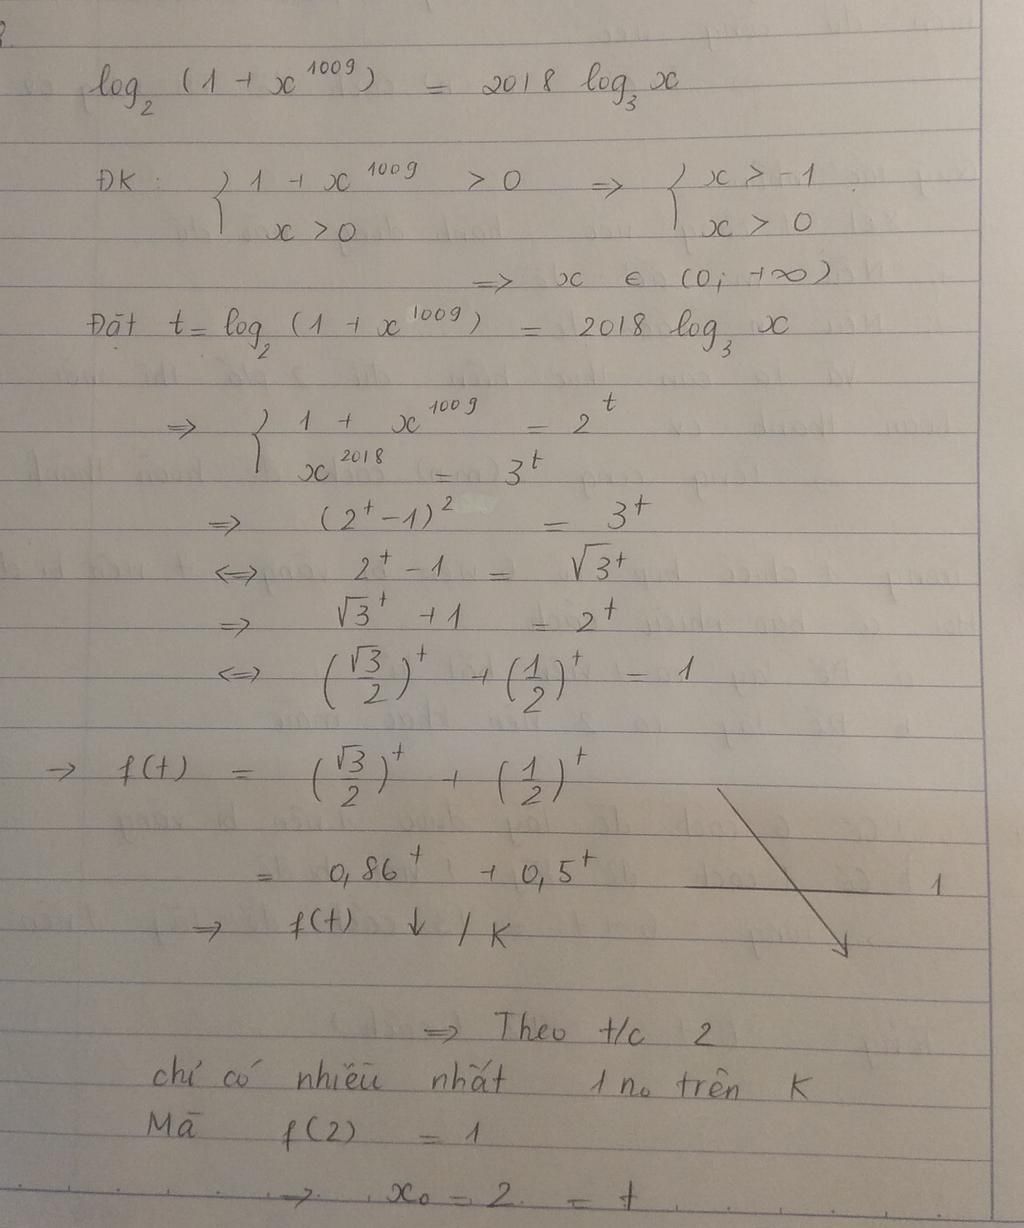 log₂ (1 + x¹⁰⁰⁹) = 2018 log₃ x
ĐK : { 1 + x¹⁰⁰⁹ > 0 => { x > -1
x > 0 x > 0
=> x ∈ (0; +∞)
Đặt t = log₂ (1 + x¹⁰⁰⁹) = 2018 log₃ x
=> { 1 + x¹⁰⁰⁹ = 2ᵗ
x²⁰¹⁸ = 3ᵗ
=> (2ᵗ - 1)² = 3ᵗ
<=> 2ᵗ - 1 = √3ᵗ
=> √3ᵗ + 1 = 2ᵗ
<=> (√3/2)ᵗ + (1/2)ᵗ = 1
→ f(t) = (√3/2)ᵗ + (1/2)ᵗ
= 0,86ᵗ + 0,5ᵗ 1
=> f(t) ↓ / K
=> Theo t/c 2
chỉ có nhiều nhất 1 n₀ trên K
Mà f(2) = 1
→ x₀ = 2 = t